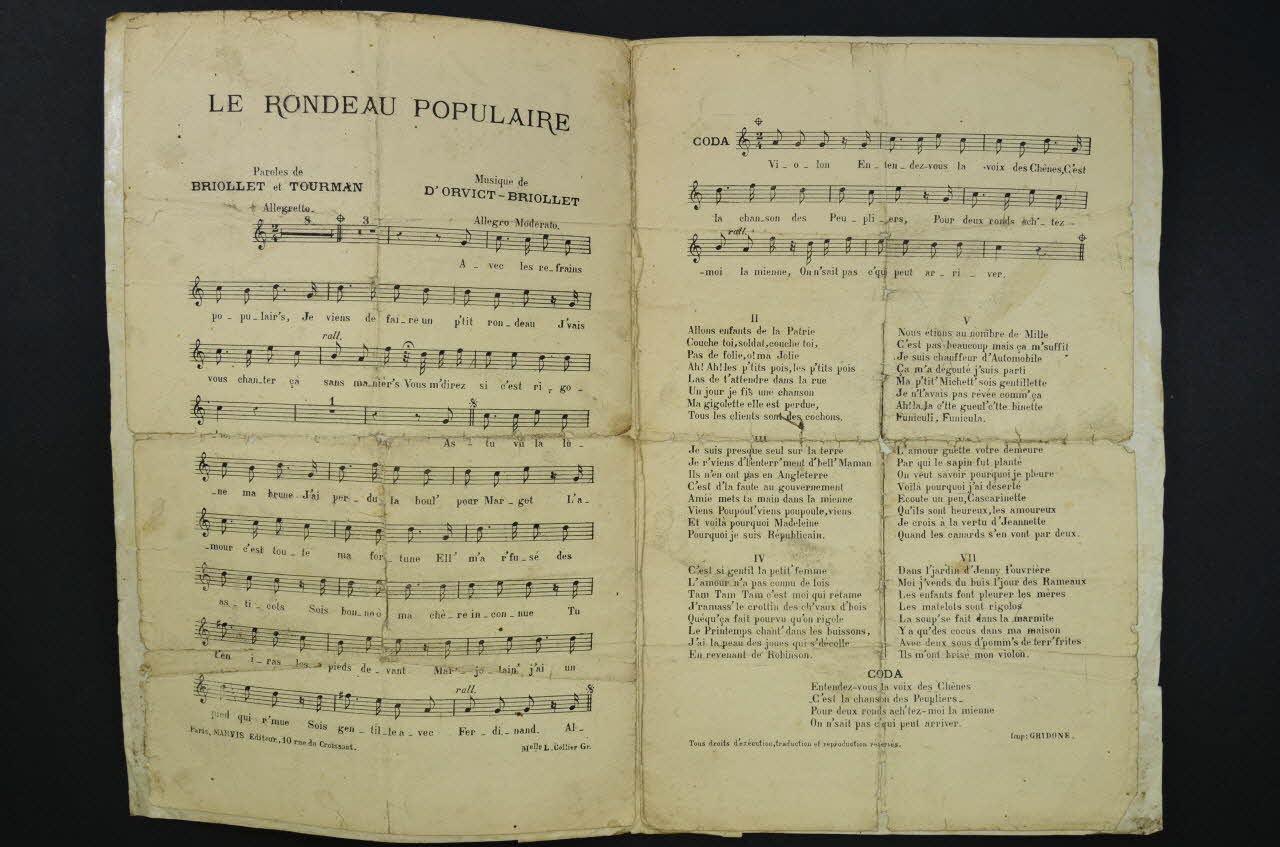 LE RONDEAU POPULAIRE
Paroles de
BRIOLLET et TOURMAN
Musique de
D'ORVICT-BRIOLLET
Allegretto.
8
3
Allegro Moderato.
A _ vec les re_frains
po _ pu_lair's, Je viens de fai_re un p'tit ron_deau J'vais
rall.
vous chan_ter ça sans ma_nièr's Vous m'direz si c'est ri_go_
1
As _ tu vu la lu_
_ne ma brune J'ai per_du la boul' pour Mar_got L'a_
_mour c'est tou_te ma for_tune Ell' m'a r'fu_sé des
as_ti_cots Sois bon_ne ô ma chè_re in_con_nue Tu
t'en i_ras les pieds de_vant Mar_jo_lain' j'ai un
rall.
pied qui r'mue Sois gen_til_le a_vec Fer_di_nand. Al_
Paris, MARVIS Editeur, 10 rue du Croissant.
Melle L. Collier Gr.
CODA
Vi _ o _ lon En_ten_dez-vous la voix des Chênes, C'est
la chan_son des Peu_pli_ers, Pour deux ronds ach'_tez_
rall.
_moi la mienne, On n'sait pas c'qui peut ar_ri_ver.
II
Allons enfants de la Patrie
Couche toi, soldat, couche toi,
Pas de folie, o! ma Jolie
Ah! Ah! les p'tits pois, les p'tits pois
Las de t'attendre dans la rue
Un jour je fis une chanson
Ma gigolette elle est perdue,
Tous les clients sont des cochons.
III
Je suis presque seul sur la terre
Je r'viens d'l'enterr'ment d'bell' Maman
Ils n'en ont pas en Angleterre
C'est d'la faute au gouvernement
Amie mets ta main dans la mienne
Viens Poupoul' viens poupoule, viens
Et voilà pourquoi Madeleine
Pourquoi je suis Républicain.
IV
C'est si gentil la petit' femme
L'amour n'a pas connu de lois
Tam Tam Tam c'est moi qui rétame
J'ramass' le crottin des ch'vaux d'bois
Quéqu'ça fait pourvu qu'on rigole
Le Printemps chant' dans les buissons,
J'ai la peau des joues qui s'décolle
En revenant de Robinson.
V
Nous étions au nombre de Mille
C'est pas beaucoup mais ça m'suffit
Je suis chauffeur d'Automobile
Ça m'a dégouté j'suis parti
Ma p'tit' Michett' sois gentillette
Je n't'avais pas rêvée comm' ça
Ah! la la c'tte gueul' c'tte binette
Funiculi, Funicula.
L'amour guette votre demeure
Par qui le sapin fut planté
On veut savoir pourquoi je pleure
Voilà pourquoi j'ai déserté
Ecoute un peu, Cascarinette
Qu'ils sont heureux, les amoureux
Je crois à la vertu d'Jeannette
Quand les canards s'en vont par deux.
VII
Dans l'jardin d'Jenny l'ouvrière
Moi j'vends du buis l'jour des Rameaux
Les enfants font pleurer les mères
Les matelots sont rigolos
La soup' se fait dans la marmite
Y a qu'des cocus dans ma maison
Avec deux sous d'pomm's de terr' frites
Ils m'ont brisé mon violon.
CODA
Entendez-vous la voix des Chênes
C'est la chanson des Peupliers
Pour deux ronds ach'tez-moi la mienne
On n'sait pas c'qui peut arriver.
Imp: GRIDONE.
Tous droits d'exécution, traduction et reproduction réservés.